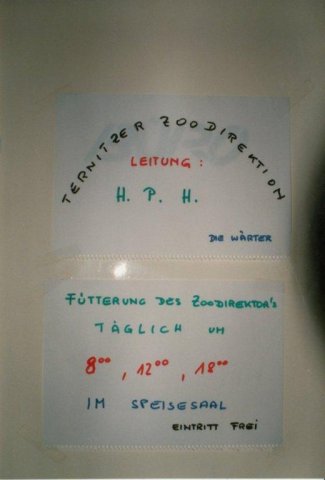 TERNITZER ZOODIREKTION
LEITUNG :
H. P. H.
DIE WÄRTER
FÜTTERUNG DES ZOODIREKTOR'S
TÄGLICH UM
8⁰⁰, 12⁰⁰, 18⁰⁰
IM SPEISESAAL
EINTRITT FREI